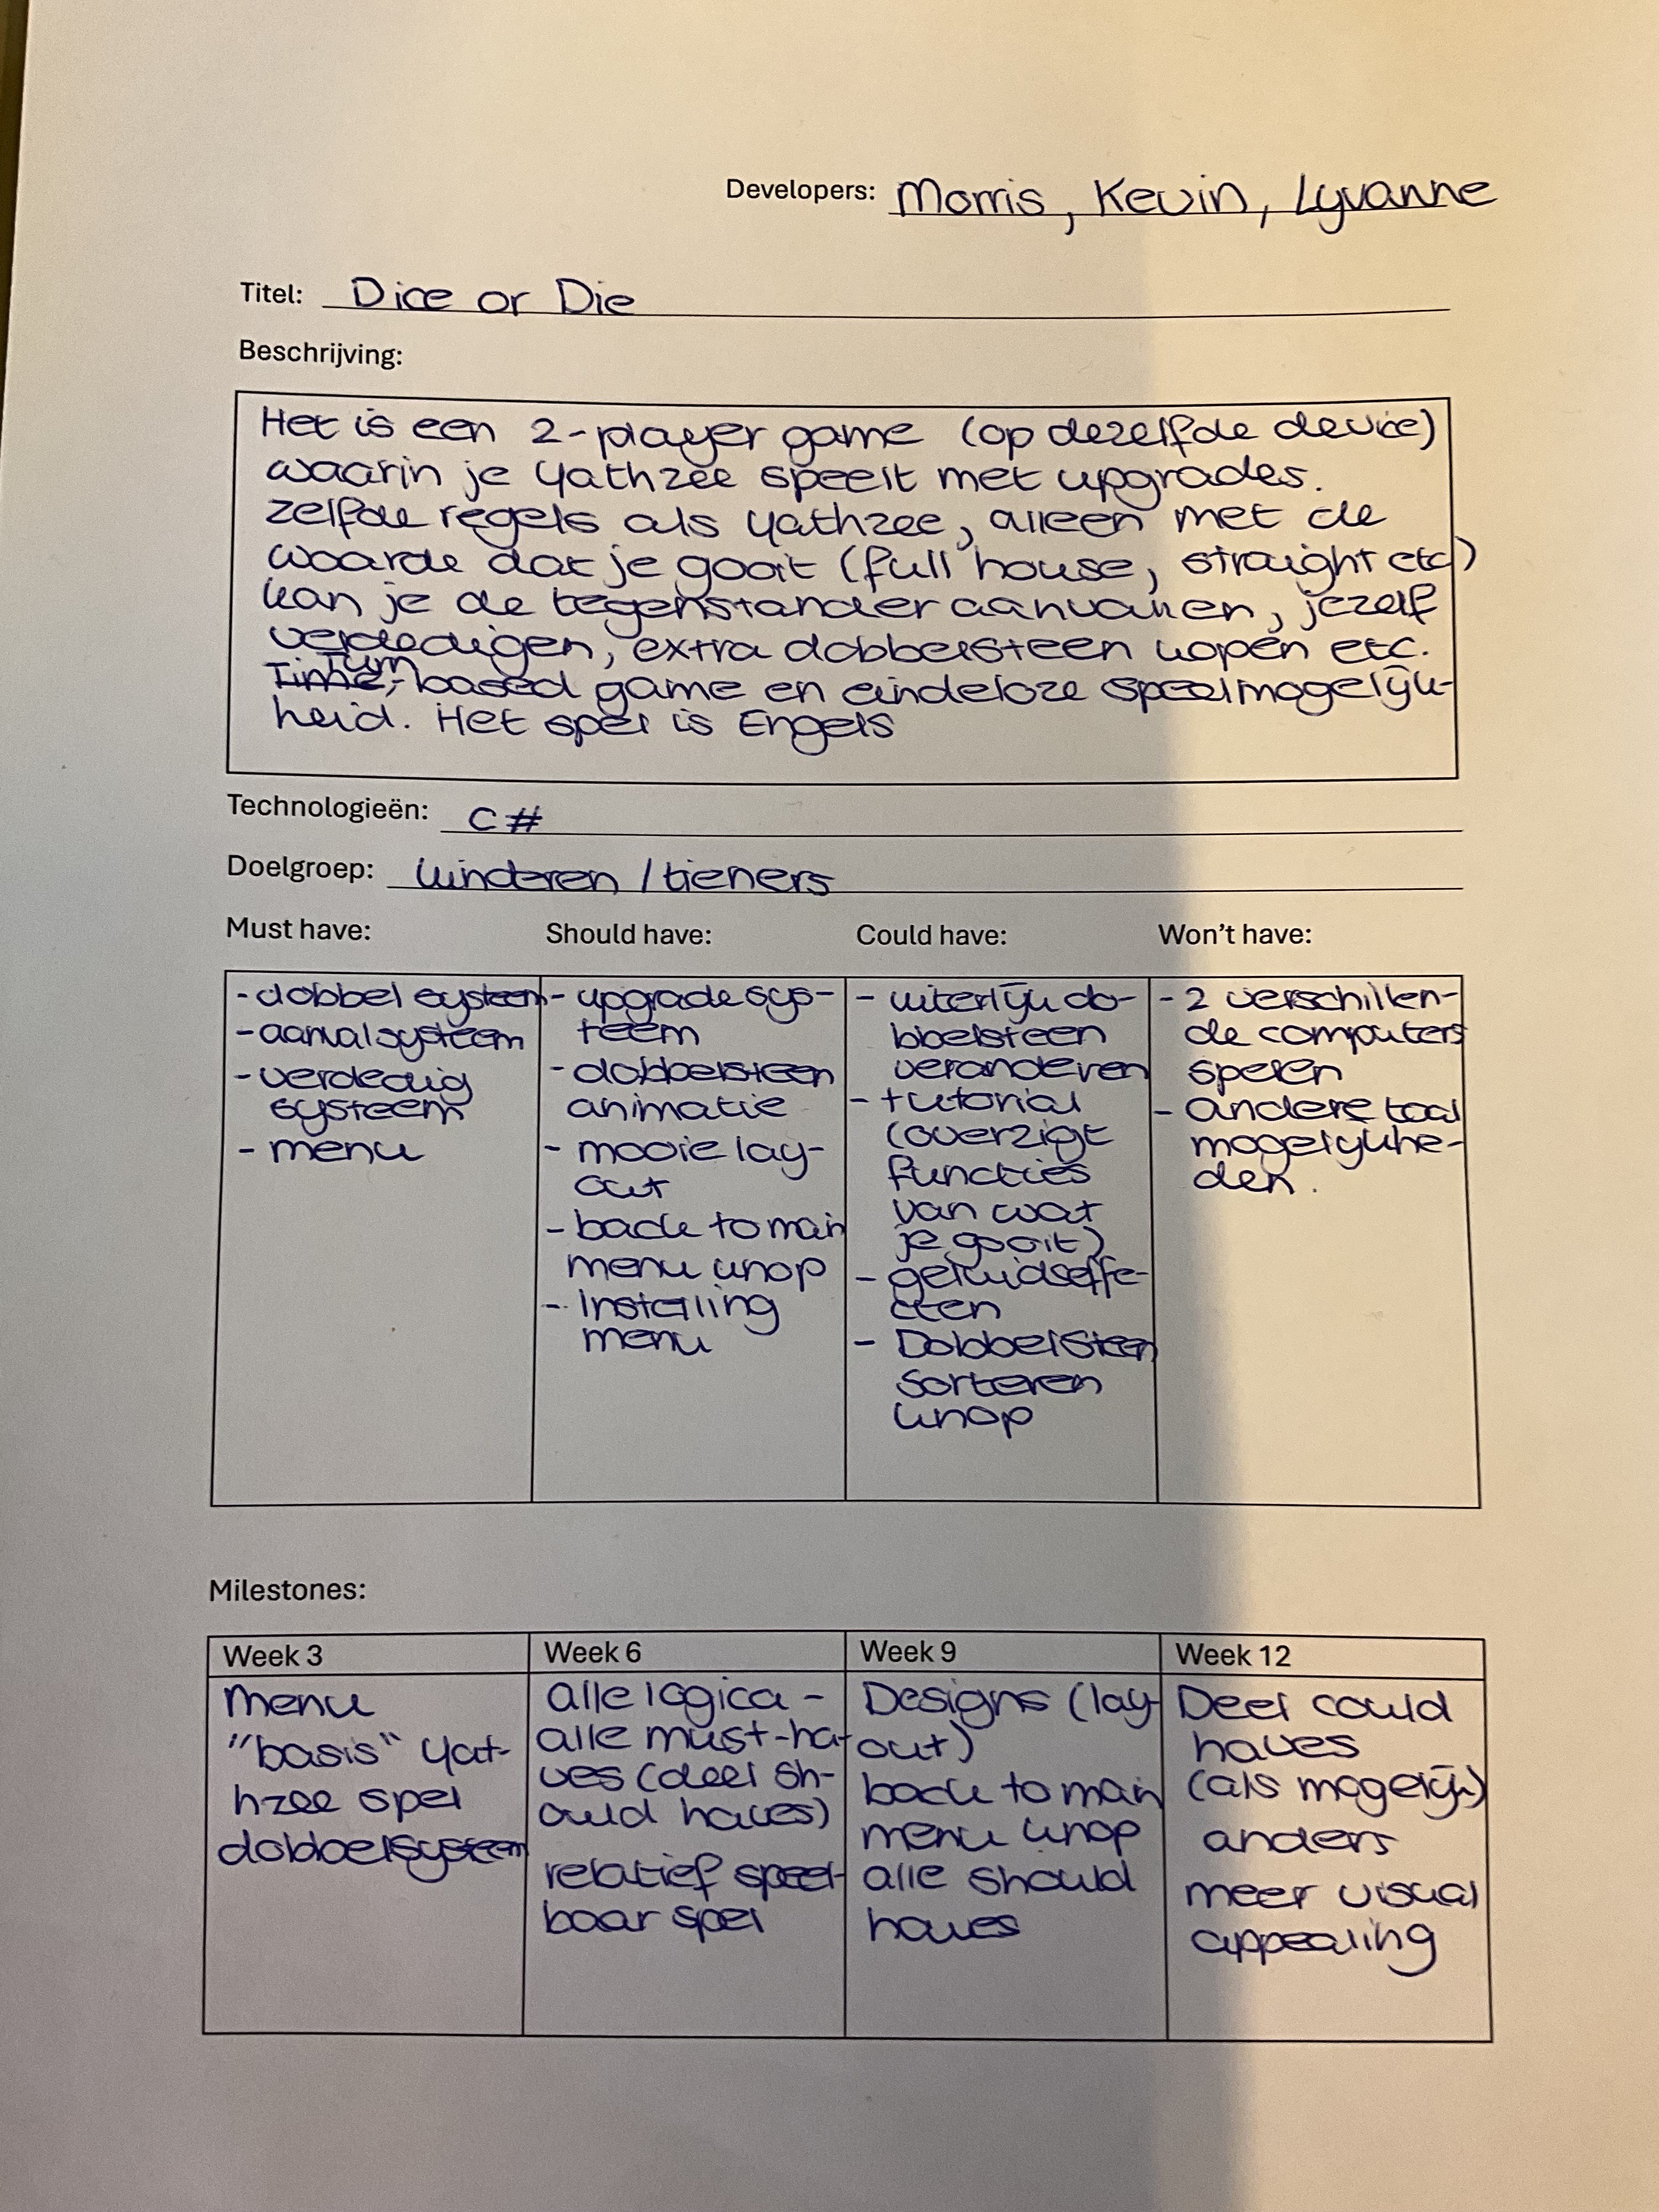 Developers: Morris, Kevin, Lyvanne
Titel: Dice or Die
Beschrijving:
Het is een 2-player game (op dezelfde device)
waarin je yathzee speelt met upgrades.
zelfde regels als yathzee, alleen met de
waarde dat je gooit (full house, straight etc)
kan je de tegenstander aanvallen, jezelf
verdedigen, extra dobbelsteen kopen etc.
Turn
Time,-based game en eindeloze speelmogelijk-
heid. Het spel is Engels
Technologieën: C#
Doelgroep: kinderen / tieners
Must have: Should have: Could have: Won't have:
- dobbel systeem
- aanval systeem
- verdedig
systeem
- menu
- upgrade sys-
teem
- dobbelsteen
animatie
- mooie lay-
out
- back to main
menu knop
- Instelling
menu
- uiterlijk do-
bbelsteen
veranderen
- tutorial
(overzigt
functies
van wat
je gooit)
- geluidseffe-
cten
- Dobbelsteen
sorteren
knop
- 2 verschillen-
de computers
spelen
- andere taal
mogelijkhe-
den.
Milestones:
Week 3 Week 6 Week 9 Week 12
menu
"basis" yat-
hzee spel
dobbelsysteem
alle logica -
alle must-ha-
ves (deel sh-
ould haves)
relatief speel-
baar spel
Designs (lay-
out)
back to main
menu knop
alle should
haves
Deel could
haves
(als mogelijk)
anders
meer visual
appealing